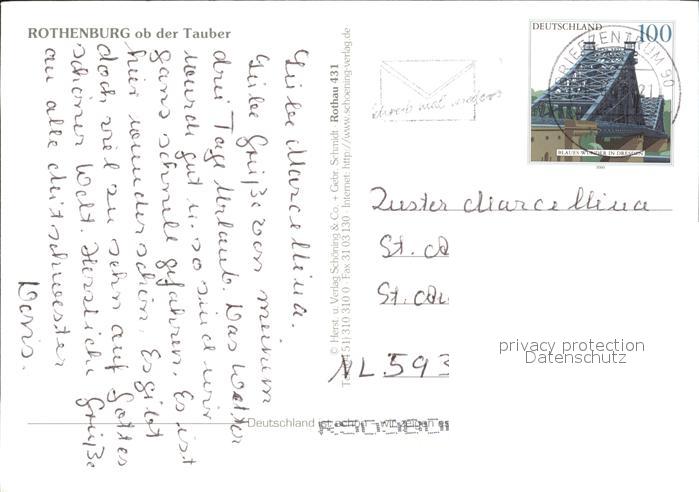 ROTHENBURG ob der Tauber
Liebe Marcellina.
Liebe Grüße von meinem
drei Tage Urlaub. Das Wetter
wurde gut u. so sind wir
ganz schnell gefahren. Es ist
hier wunderschön. Es gibt
doch viel zu sehn auf Gottes
schöner Welt. Herzliche Grüße
an alle Mitschwester
Doris.
© Herst. u. Verlag Schöning & Co. + Gebr. Schmidt · Rothau 431
51) 310 310 0 · Fax 31 03 130 · Internet: http://www.schoening-verlag.de
schreib mal wieder
DEUTSCHLAND 100
BRIEFZENTRUM 90
21
BLAUES WUNDER IN DRESDEN
2000
Zuster Marcellina
St.
St.
NL 593
privacy protection
Datenschutz
Deutschland ist schön - wir zeigen es